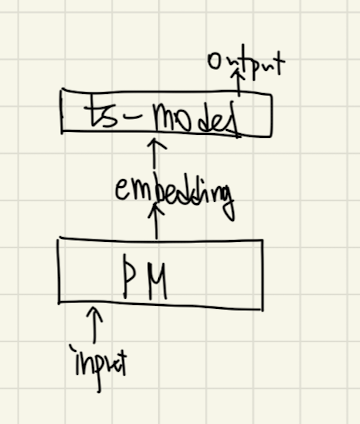 output
ts-model
embedding
PM
input